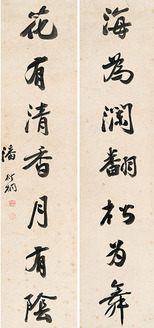 海為瀾翻松为舞
花有清香月有陰
潘